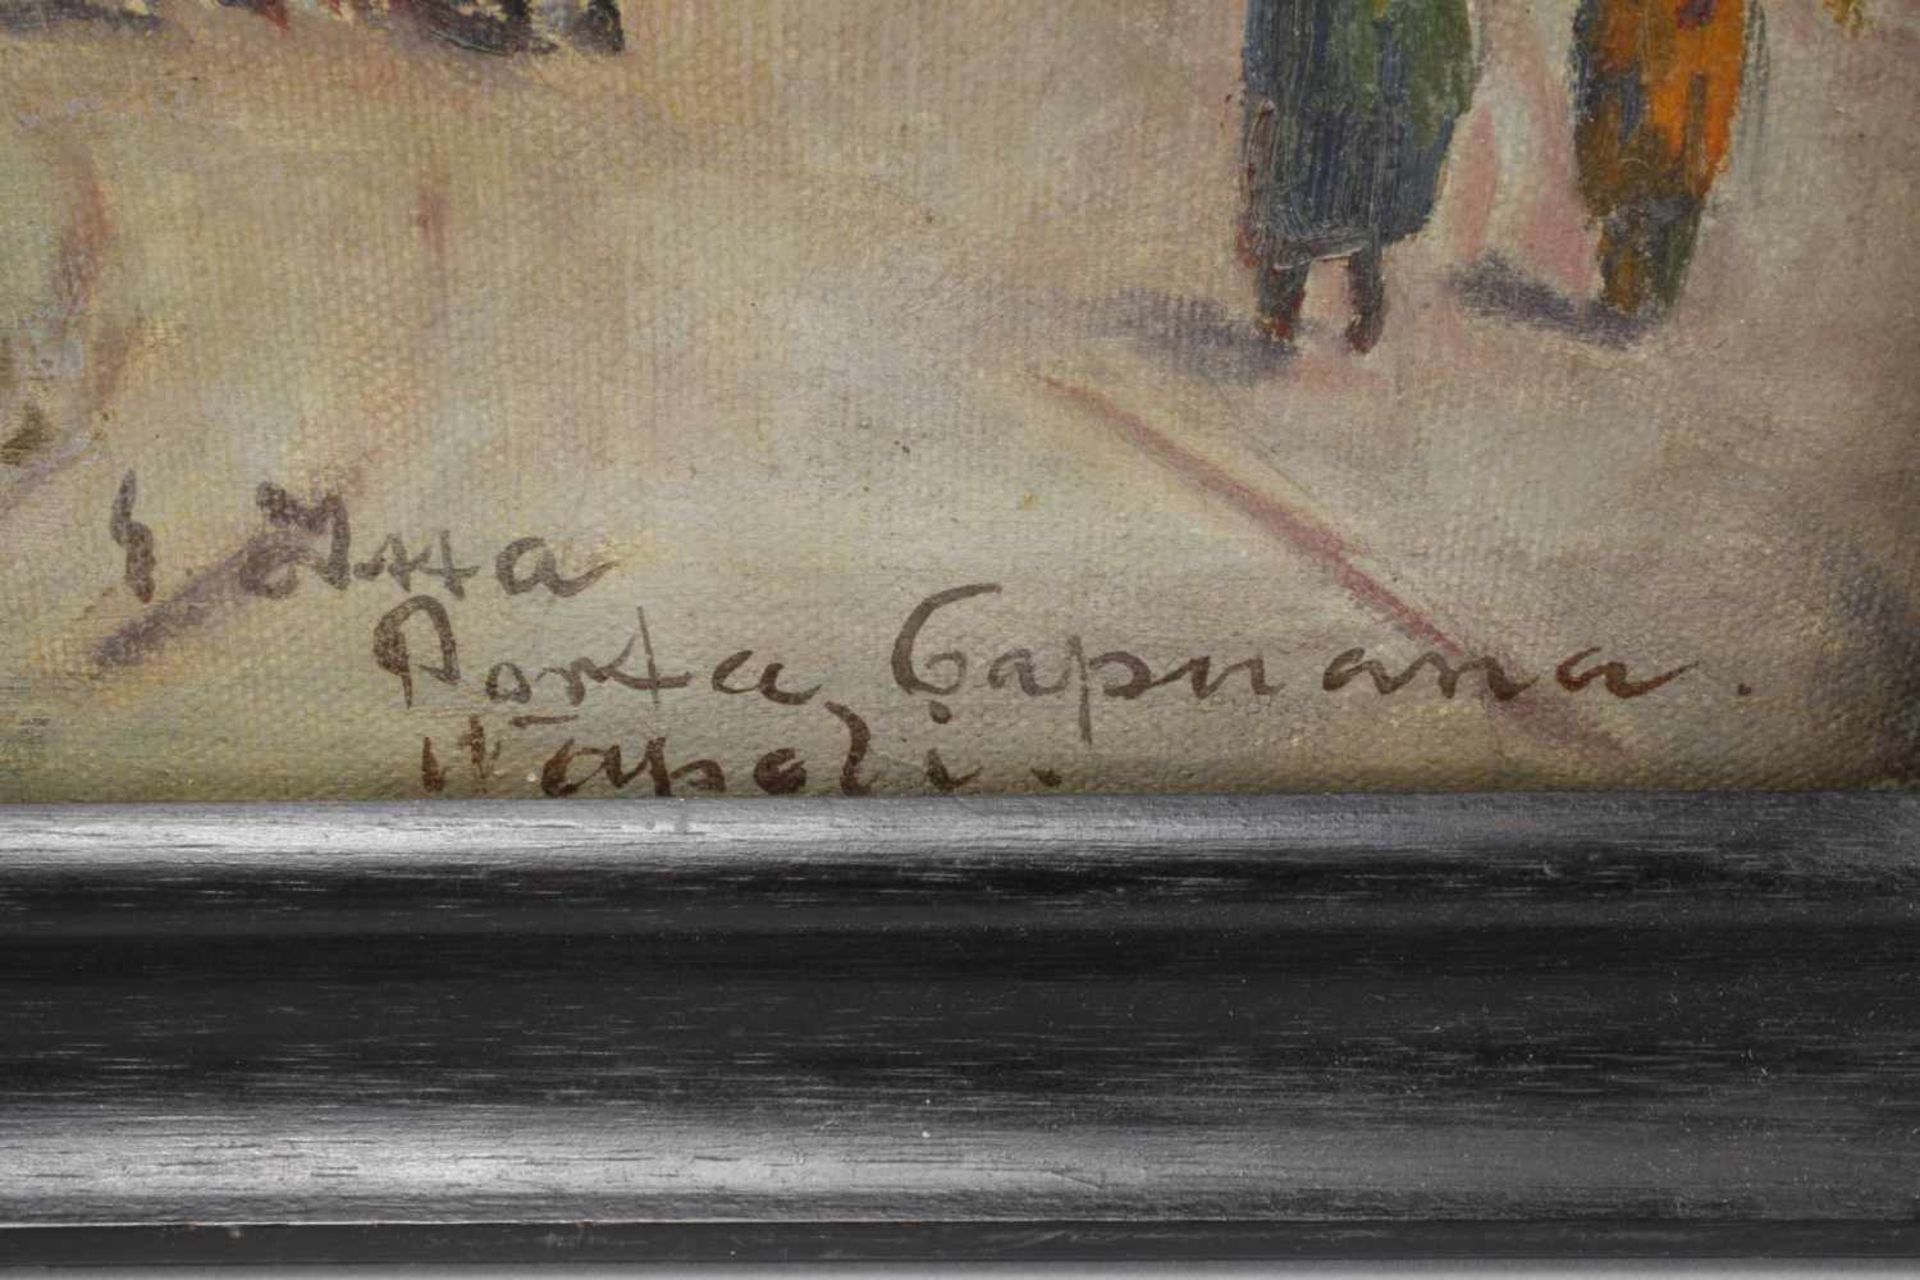 Porta Capuana.
Napoli.